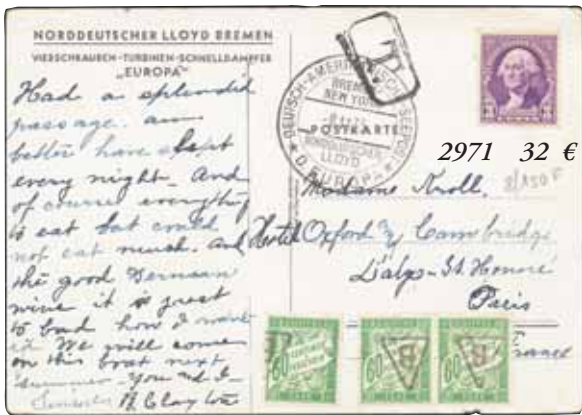 NORDDEUTSCHER LLOYD BREMEN
VIERSCHRAUBEN-TURBINEN-SCHNELLDAMPFER
„EUROPA"
Had a splendid
passage. am
better have slept
every night. And
of course everything
to eat but could
not eat much. And
the good German
wine it is great
to bad how I want
it. We will come
on this boat next
summer. You and I
Clayton
T
DEUTSCH-AMERIKANISCHE SEEPOST
BREMEN
NEW YORK
POSTKARTE
NORDDEUTSCHER
LLOYD
D. EUROPA
2971 32 €
Madame Kroll
Hotel Oxford & Cambridge
D'alger-St. Honoré
Paris
France
60 60 60
B B